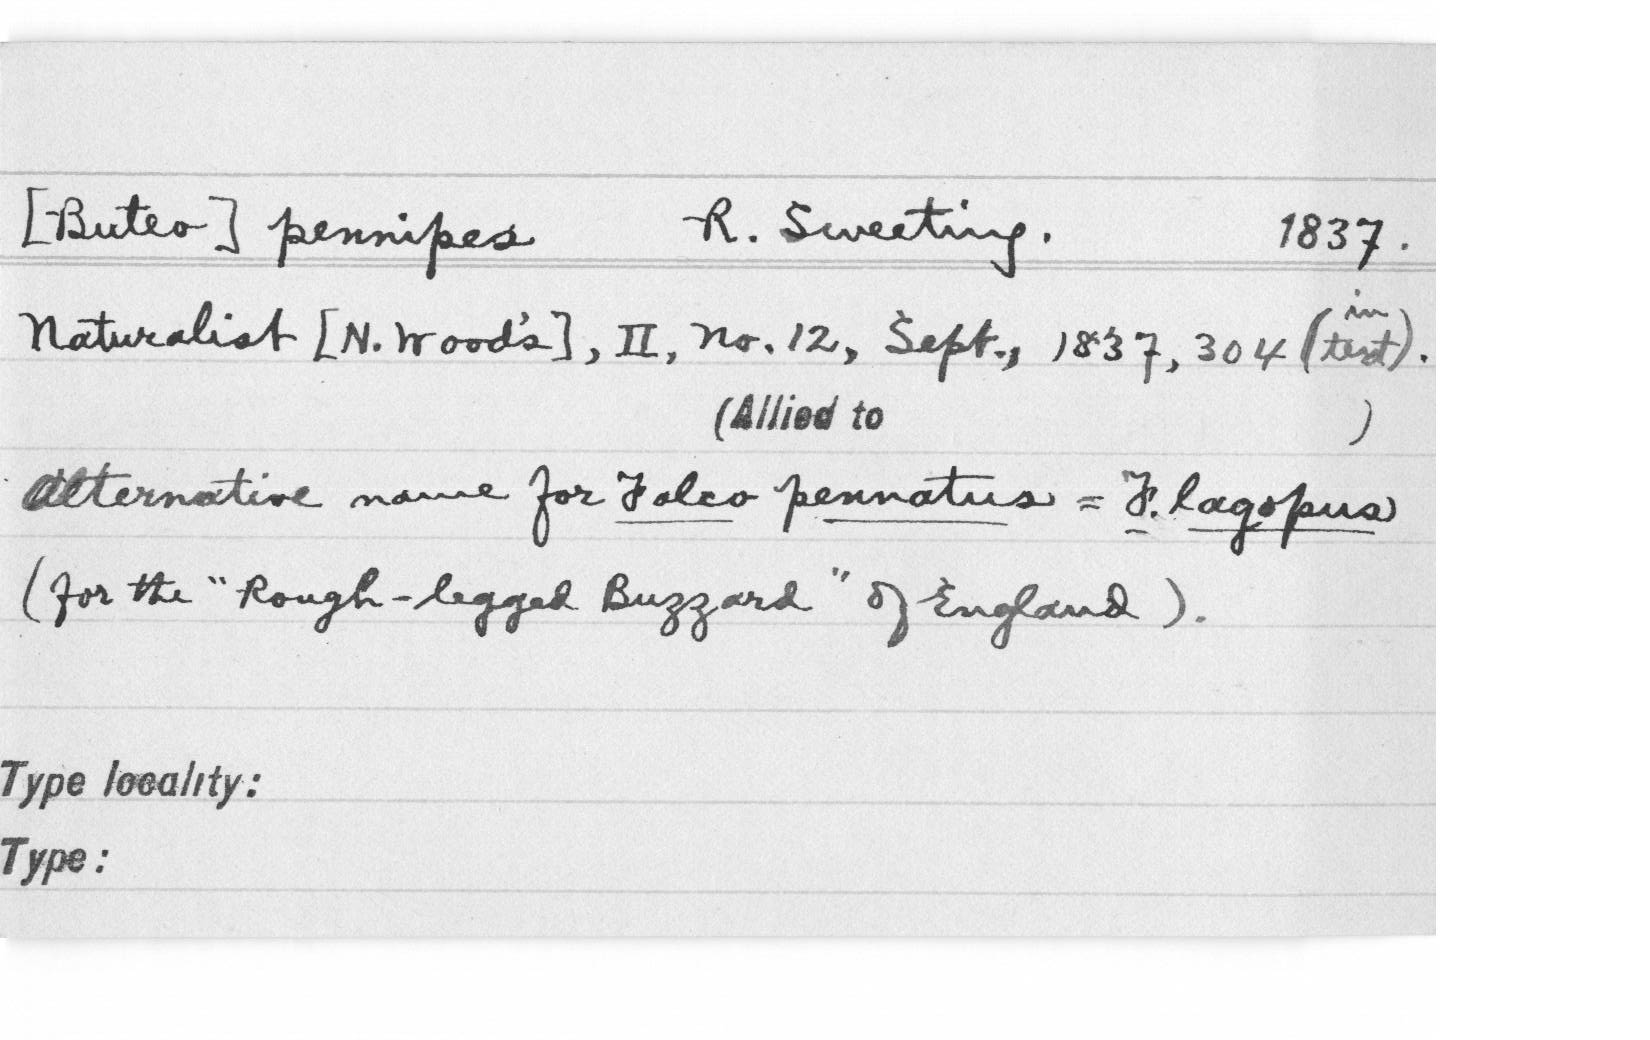 [Buteo] pennipes R. Sweeting. 1837.
Naturalist [N. Wood's], II, no. 12, Sept., 1837, 304 (in text).
(Allied to )
Alternative name for Falco pennatus = F. lagopus
(for the "Rough-legged Buzzard" of England).
Type locality:
Type: